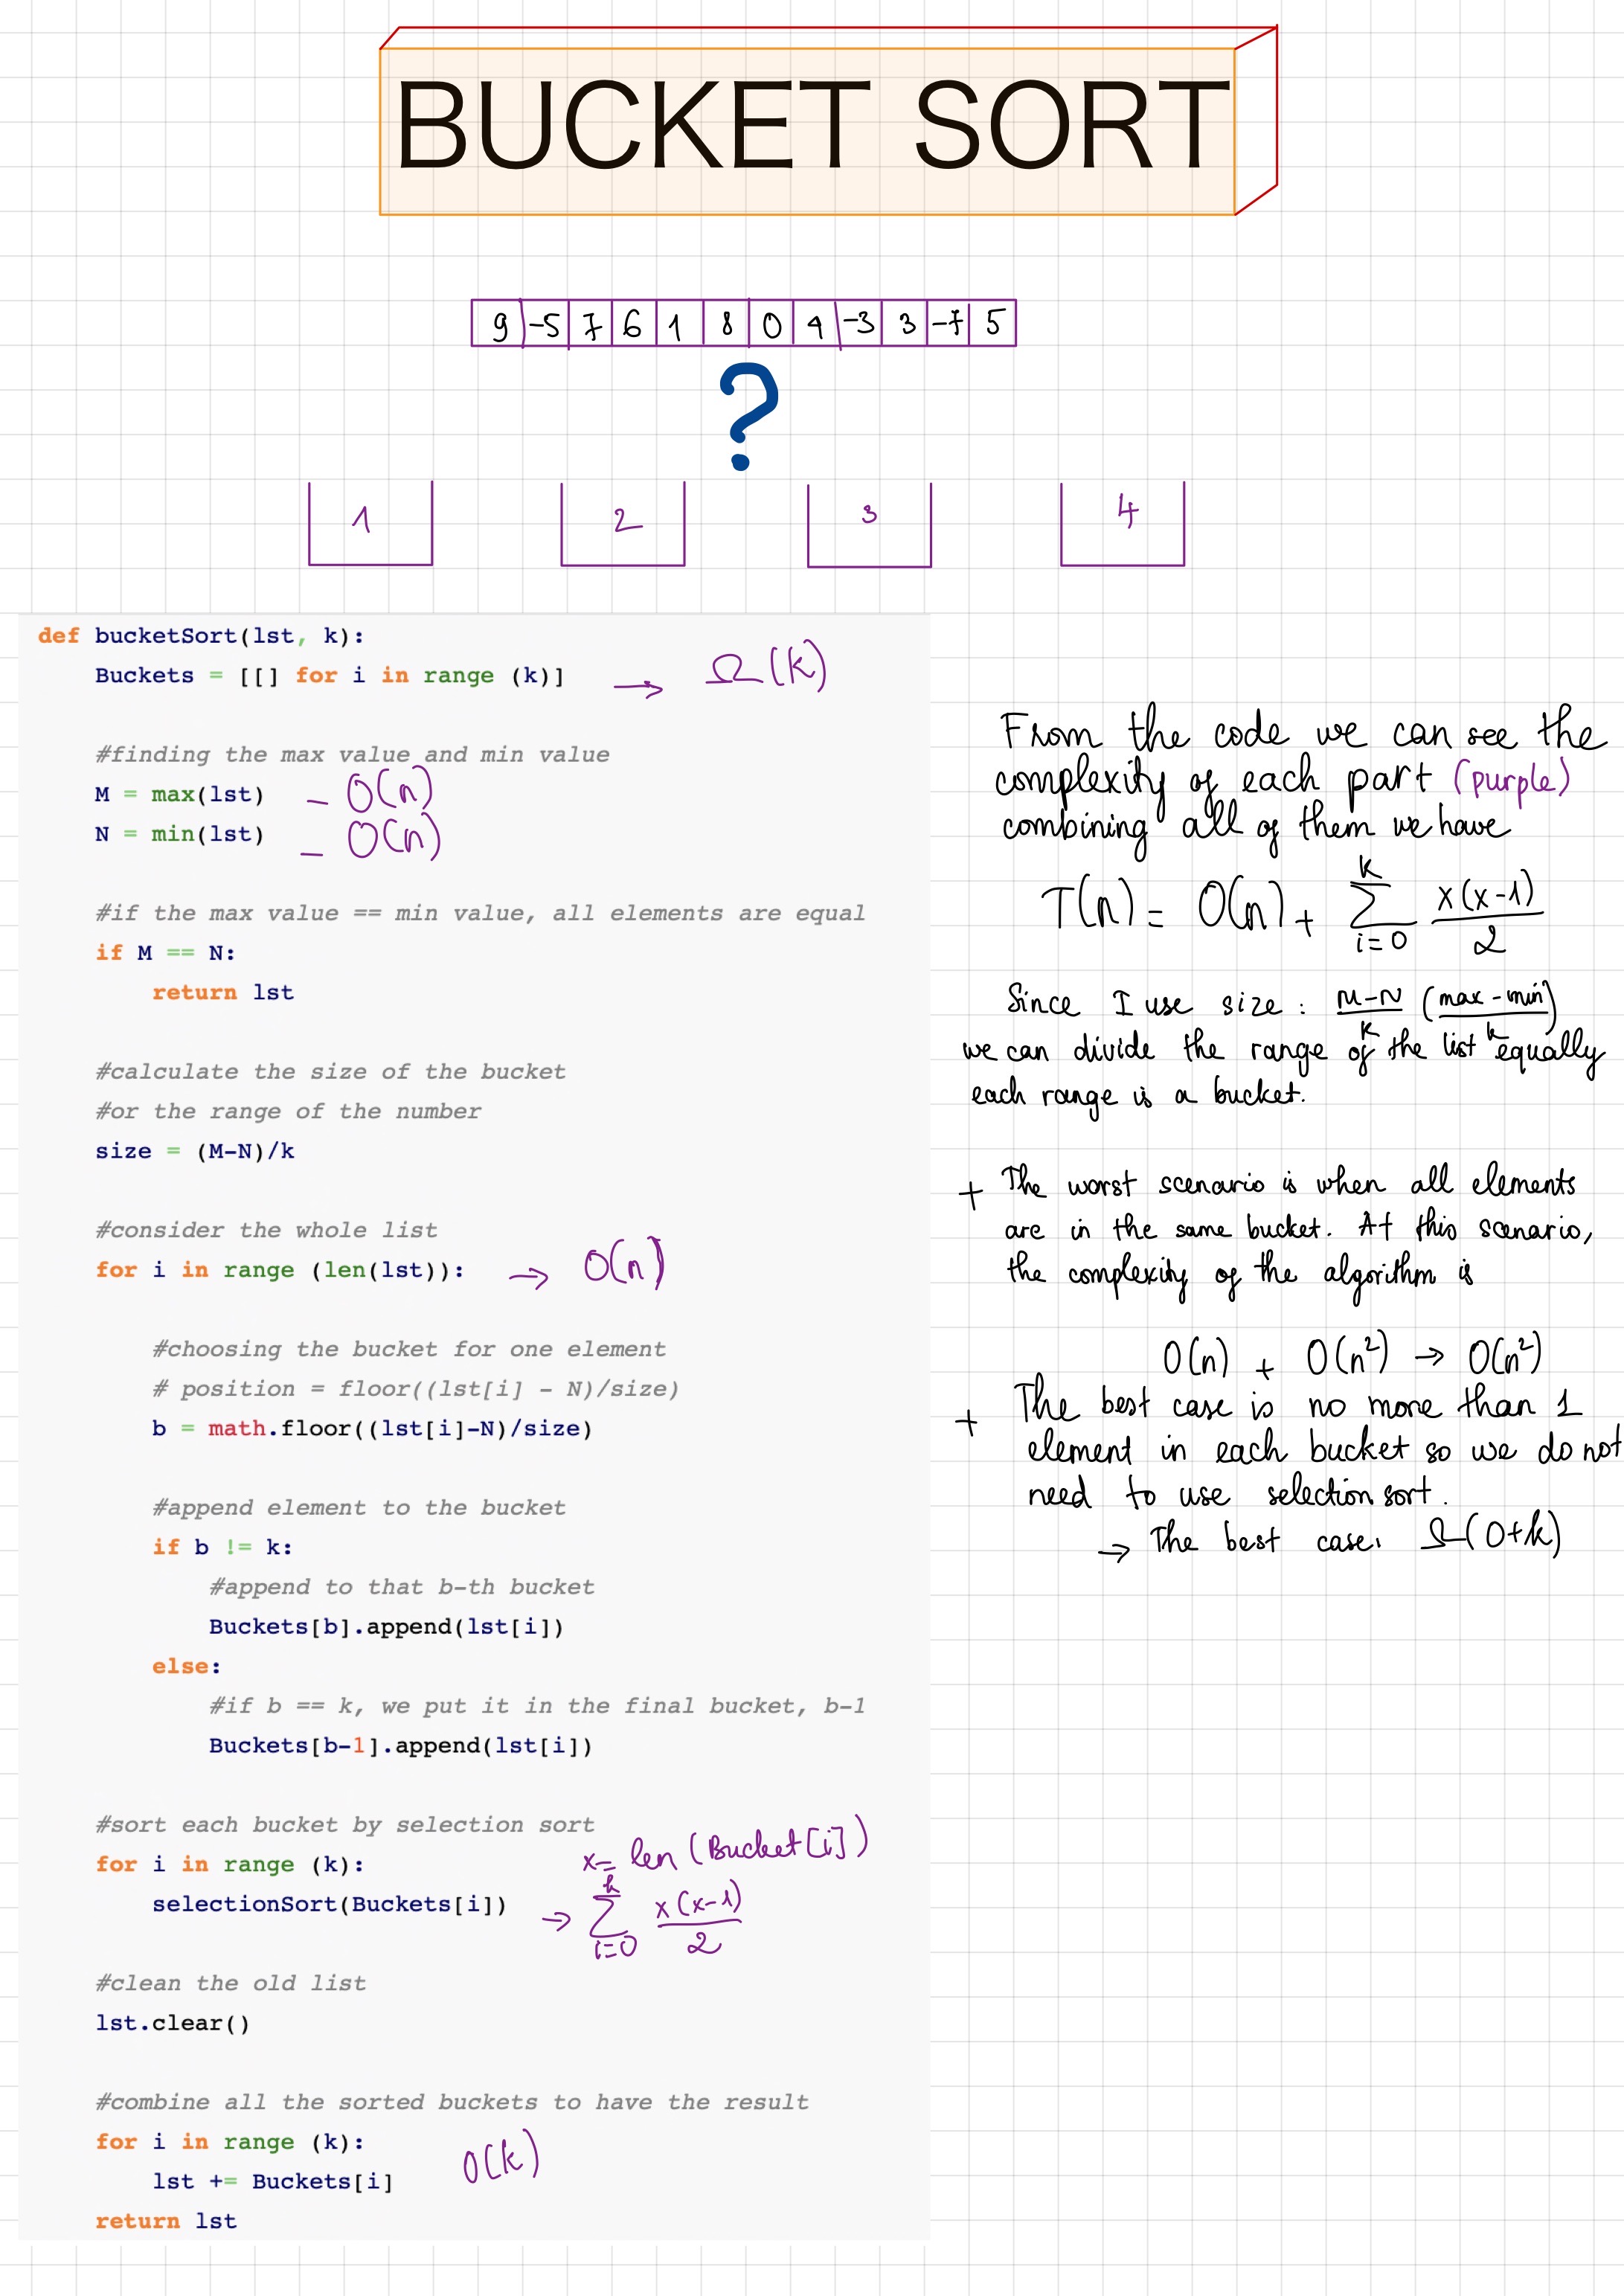 BUCKET SORT
9 -5 7 6 1 8 0 4 -3 3 -7 5
?
1 2 3 4
def bucketSort(lst, k):
Buckets = [[] for i in range (k)] → Ω(k)
#finding the max value and min value
M = max(lst) – O(n)
N = min(lst) – O(n)
#if the max value == min value, all elements are equal
if M == N:
return lst
#calculate the size of the bucket
#or the range of the number
size = (M-N)/k
#consider the whole list
for i in range (len(lst)): → O(n)
#choosing the bucket for one element
# position = floor((lst[i] - N)/size)
b = math.floor((lst[i]-N)/size)
#append element to the bucket
if b != k:
#append to that b-th bucket
Buckets[b].append(lst[i])
else:
#if b == k, we put it in the final bucket, b-1
Buckets[b-1].append(lst[i])
#sort each bucket by selection sort
x= len (Bucket[i])
for i in range (k):
selectionSort(Buckets[i]) → k∑i=0 x(x-1)/2
#clean the old list
lst.clear()
#combine all the sorted buckets to have the result
for i in range (k):
lst += Buckets[i] O(k)
return lst
From the code we can see the
complexity of each part (purple)
combining all of them we have
T(n) = O(n) + k∑i=0 x(x-1)/2
Since I use size : M-N/k (max-min)/k
we can divide the range of the list equally
each range is a bucket.
+ The worst scenario is when all elements
are in the same bucket. At this scenario,
the complexity of the algorithm is
O(n) + O(n²) → O(n²)
+ The best case is no more than 1
element in each bucket so we do not
need to use selection sort.
→ The best case: Ω(0+k)